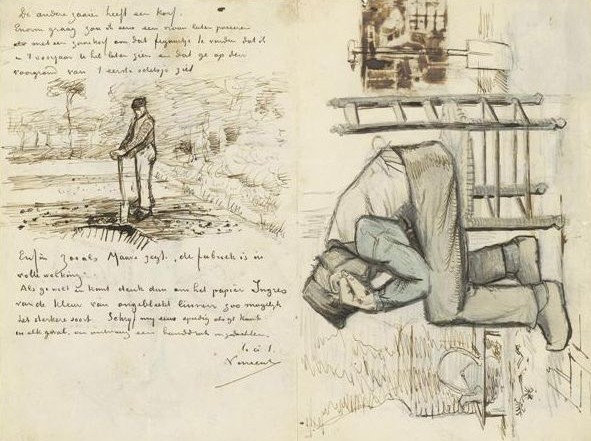 De andere zaaier heeft een korf.
Enorm graag zou ik eens een vrouw laten poseeren
met een zaadkorf om dat figuurtje te vinden dat ik
U in 't voorjaar heb laten zien en dat ge op den
voorgrond van 't eerste schetsje ziet
Enfin zooals Mauve zegt, de fabriek is in
volle werking.
Als ge wilt en kunt denk dan om het papier Ingres
van de kleur van ongebleekt linnen zoo mogelijk
het sterkere soort. Schrijf mij eens spoedig als ge kunt
in elk geval, en ontvang een handdruk in gedachten.
t. à t.
Vincent